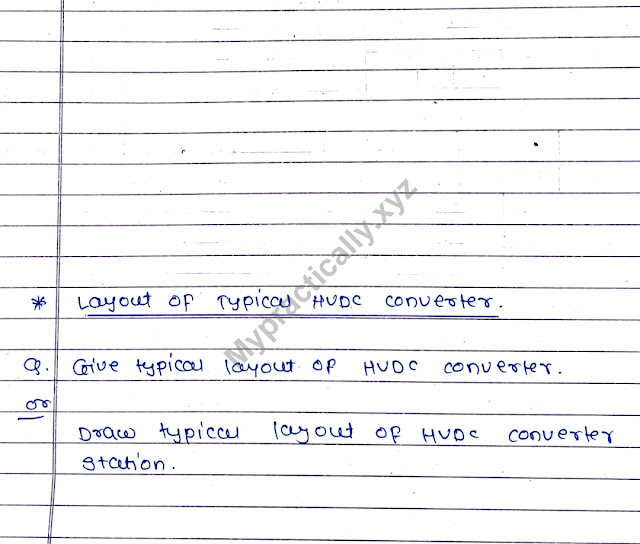 * Layout of Typical HVDC converter.
Q. Give typical layout of HVDC converter.
or
Draw typical layout of HVDC converter
station.
Mypractically.xyz